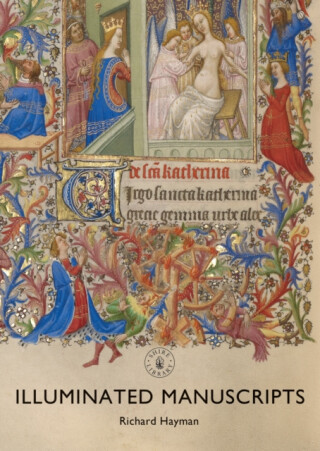 De scā katherina
Virgo sancta katherina
grecie gemma urbe alex
SHIRE LIBRARY
ILLUMINATED MANUSCRIPTS
Richard Hayman